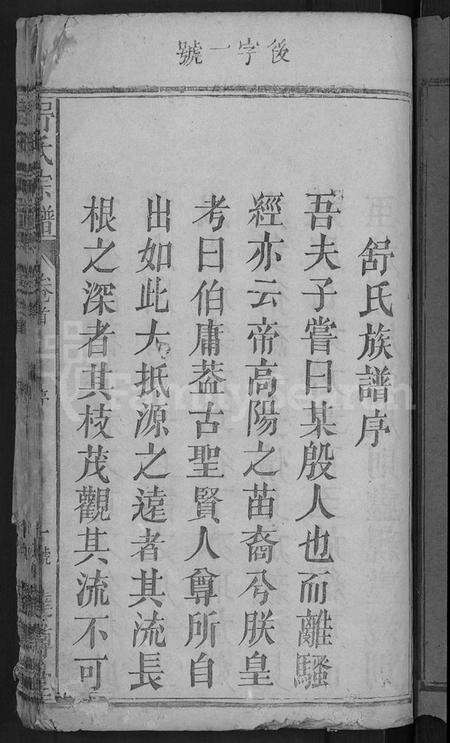 後字一號
舒氏族譜序
吾夫子嘗曰某殷人也而離騷
經亦云帝高陽之苗裔兮朕皇
考曰伯庸葢古聖賢人尊所自
出如此大抵源之遠者其流長
根之深者其枝茂觀其流不可
舒氏宗譜
卷首
序
FamilySearch